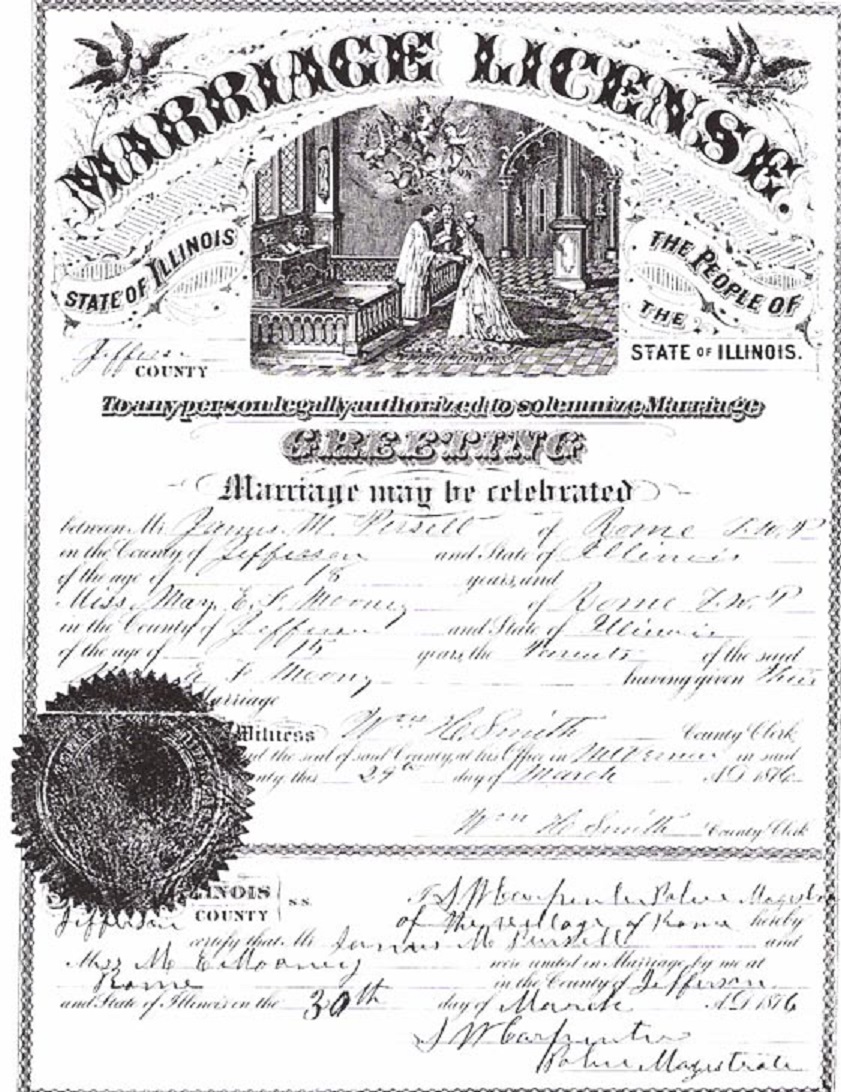 MARRIAGE LICENSE.
STATE OF ILLINOIS
THE PEOPLE OF
THE
STATE OF ILLINOIS.
Jefferson
COUNTY
To any person legally authorized to solemnize Marriage
GREETING
Marriage may be celebrated
between Mr James M. of Rome T.W.P
in the County of Jefferson and State of Illinois
of the age of 18 years, and
Miss May E. F. Mooney of Rome T.W.P
in the County of Jefferson and State of Illinois
of the age of 15 years, the Parents of the said
E F Moony having given their
Marriage
Witness Wm H. Smith County Clerk
and the seal of said County, at his Office in Mt Vernon in said
County, this 29th day of March A.D. 1876
Wm H Smith County Clerk
ILLINOIS
Jefferson COUNTY
S.S.
I S W Carpenter Police Magistrate
of the village of Rome hereby
certify that Mr James M. Pursell and
Miss M E Mooney were united in Marriage by me at
Rome in the County of Jefferson
and State of Illinois on the 30th day of March A.D. 1876
S W Carpenter
Police Magistrate